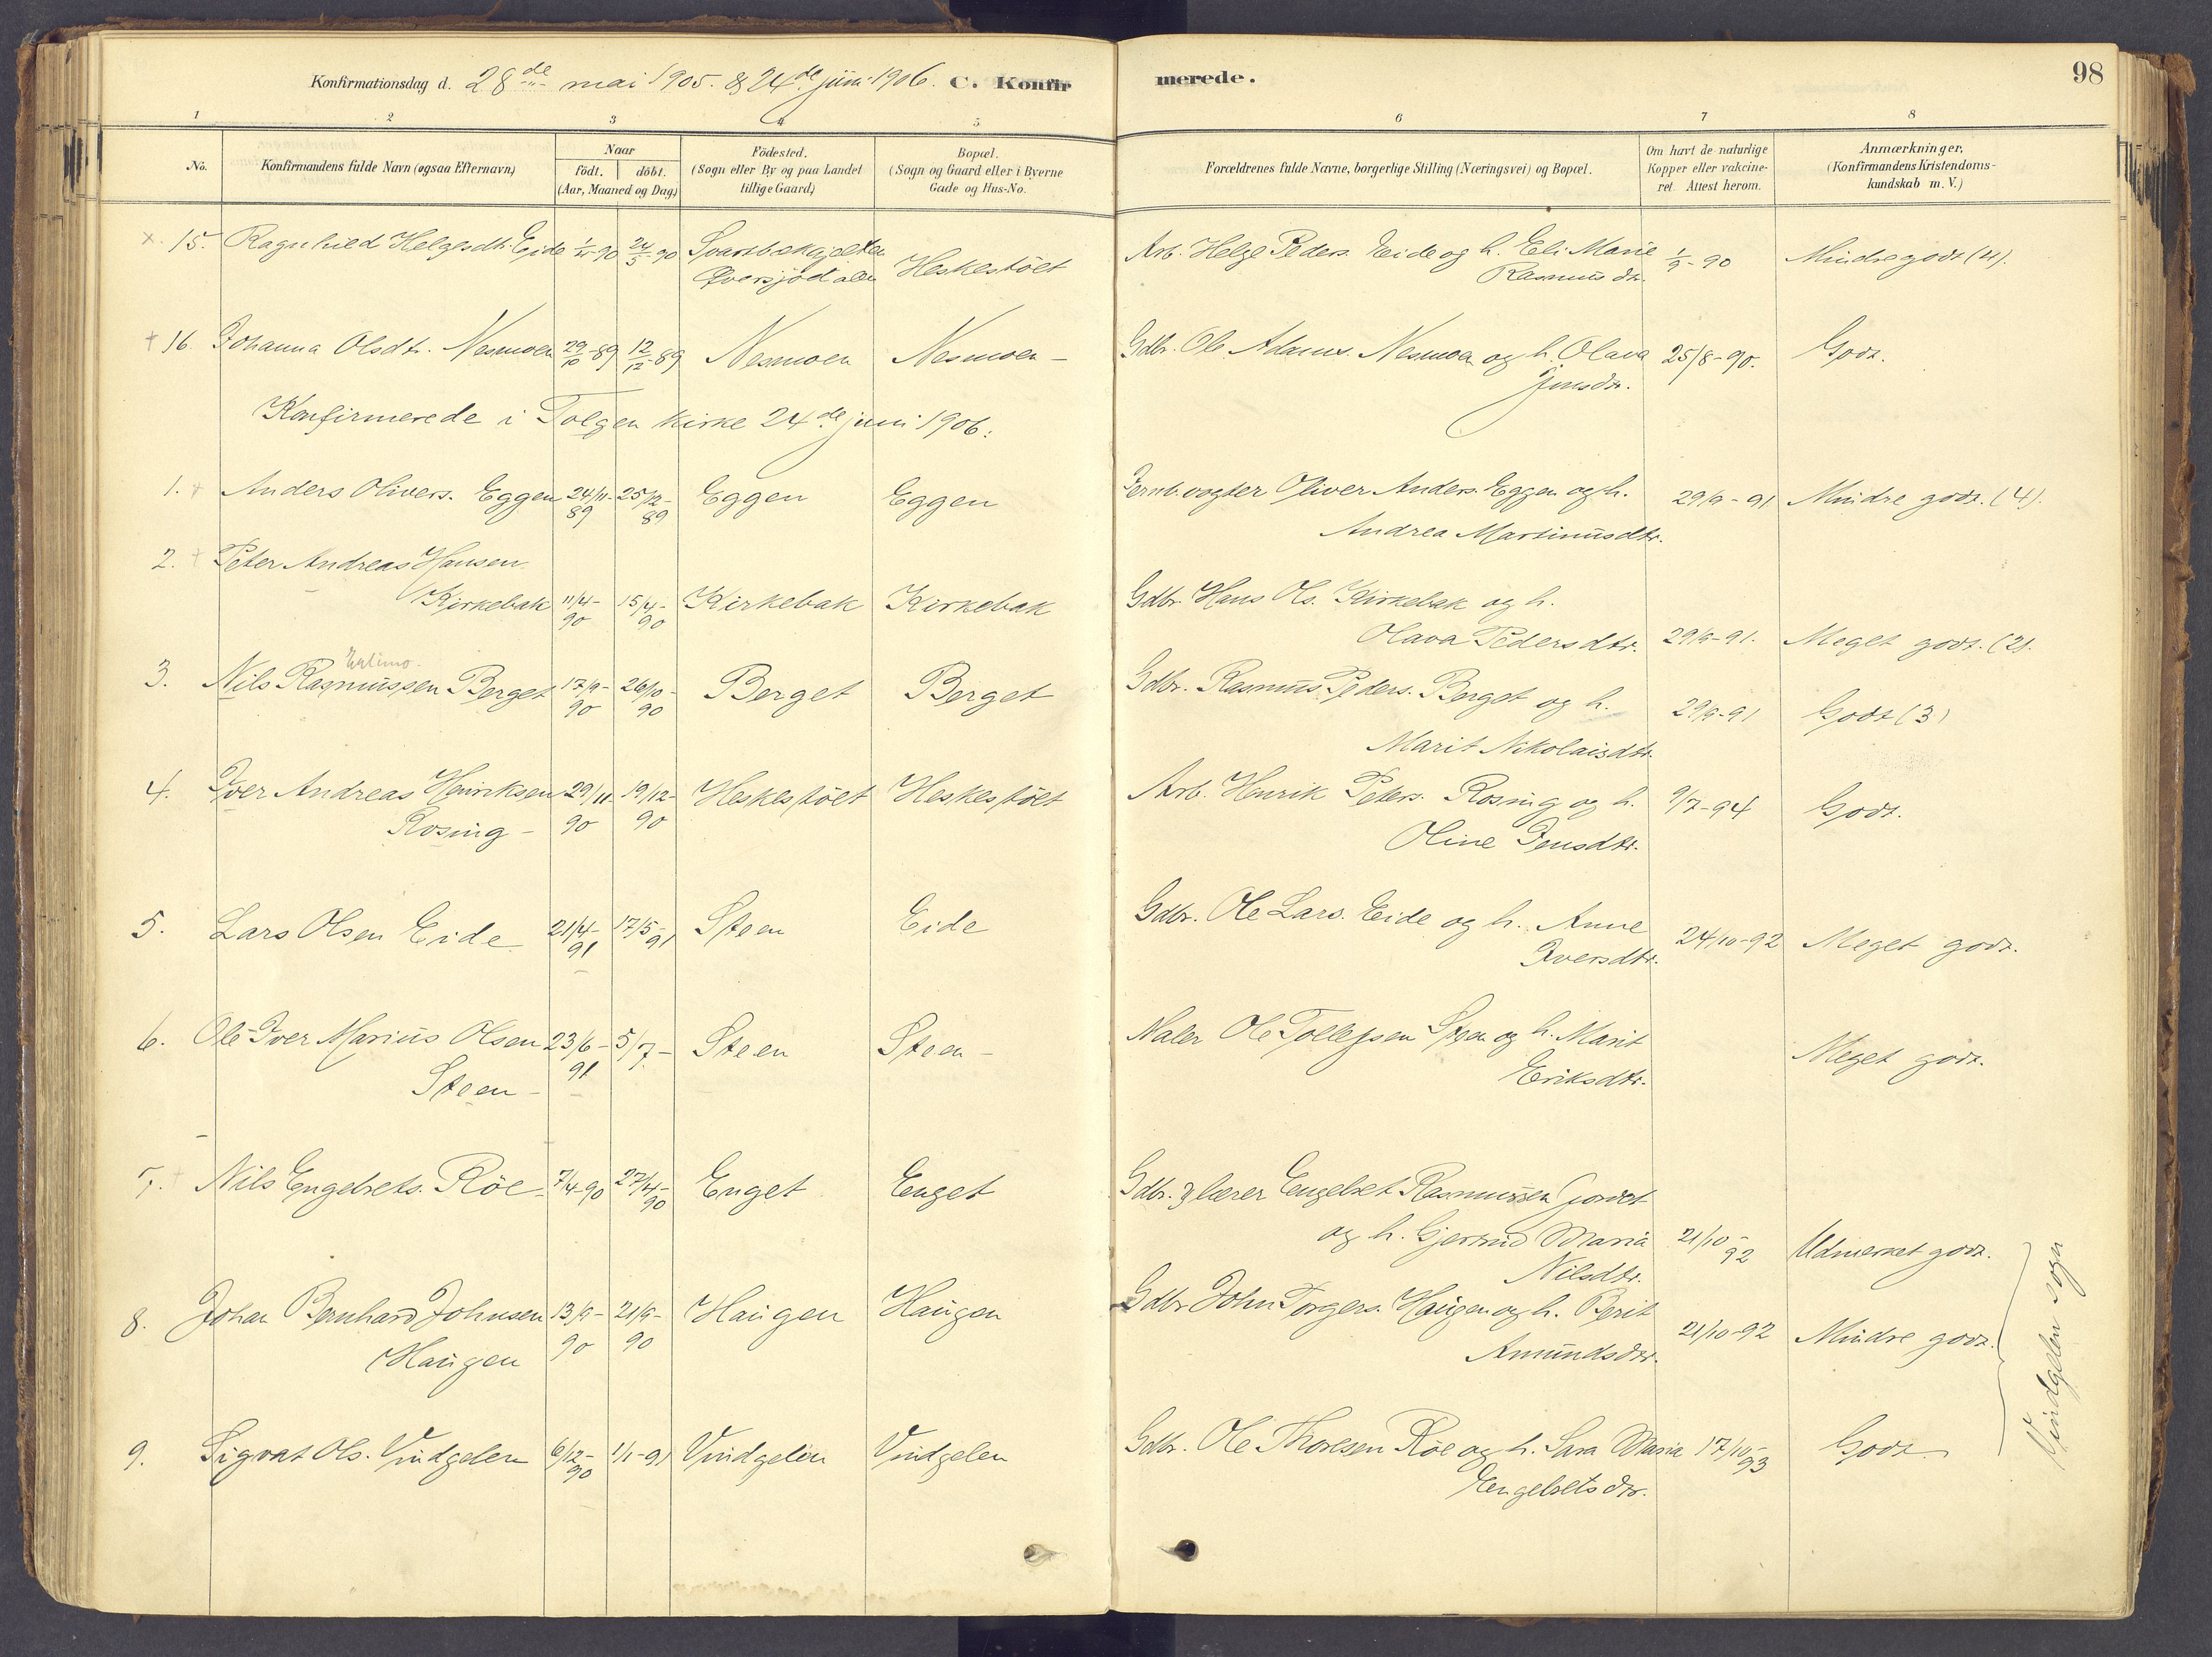 Konfirmationsdag d. 28de mai 1905. & 24de juni 1906. C. Konfirmerede. 98
1 2 3 4 5 6 7 8
No. Konfirmandens fulde Navn (ogsaa Efternavn) Naar födt. döbt. (Aar, Maaned og Dag) Födested. (Sogn eller By og paa Landet tillige Gaard) Bopæl. (Sogn og Gaard eller i Byerne Gade og Hus-No. Forældrenes fulde Navne, borgerlige Stilling (Næringsvei) og Bopæl. Om havt de naturlige Kopper eller vakcineret. Attest herom. Anmærkninger, (Konfirmandens Kristendomskundskab m. V.)
x. 15. Ragnhild Helgesdtr. Eide 90 24/5-90 Heskestöet Arb. Helge Peders. Eide og h. Eli Marie 1/9-90 Mindre godt (4).
Rasmusdtr.
+ 16. Johanna Olsdtr. Nesmoen 29/10-89 12/12-89 Nesmoen Nesmoen - Gdbr. Ole Adams. Nesmoen og h. Olava 25/8-90. Godt.
Jensdtr.
Konfirmerede i Tolgen kirke 24de juni 1906:
1. + Anders Olivers. Eggen 24/11-89 25/12-89 Eggen Eggen Jernb.vogter Oliver Anders. Eggen og h. 29/9-91 Mindre godt. (4).
Andrea Martinusdtr.
2. + Peter Andreas Hansen
Kirkebak 11/4-90 15/4-90 Kirkebak Kirkebak Gdbr. Hans Ols. Kirkebak og h.
Olava Pedersdtr. 29/9-91. Meget godt. (2).
3. Nils Rasmussen Berget 17/9-90 26/10-90 Berget Berget Gdbr. Rasmus Peders. Berget og h. 29/9-91 Godt (3)
Marit Nikolaisdtr.
4. Iver Andreas Henriksen 29/11-90 19/12-90 Heskestöet Heskestöet Arb. Henrik Peters. Rosing og h. 9/7-94 Godt.
Rosing - Oline Jensdtr.
5. Lars Olsen Eide 21/4-91 17/5-91 Steen Eide Gdbr. Ole Lars. Eide og h. Anne 24/10-92 Meget godt.
Iversdtr.
6. Ole Iver Marius Olsen 23/6-91 5/7- Steen Steen - Maler Ole Tollefsen Steen og h. Marit Meget godt.
Steen - Eriksdtr.
7. + Nils Engebrets. Röe 7/4-90 27/4-90 Enget Enget Gdbr. & lærer Engebret Rasmussen
og h. Gjertrud Maria 21/10-92 Udmerket godt.
Nilsdtr.
8. Johan Bernhard Johnsen 13/9-90 21/9-90 Haugen Haugen Gdbr John Torgers. Haugen og h. Berit 21/10-92 Mindre godt.
Haugen Amundsdtr.
9. Sigvat Ols. Vindgelen 6/12-90 1/1-91 Vindgelen Vindgelen Gdbr. Ole Thoresen Röe og h. Sara Maria 17/10-93 Godt.
Engebretsdtr.
Vindgelen sogn